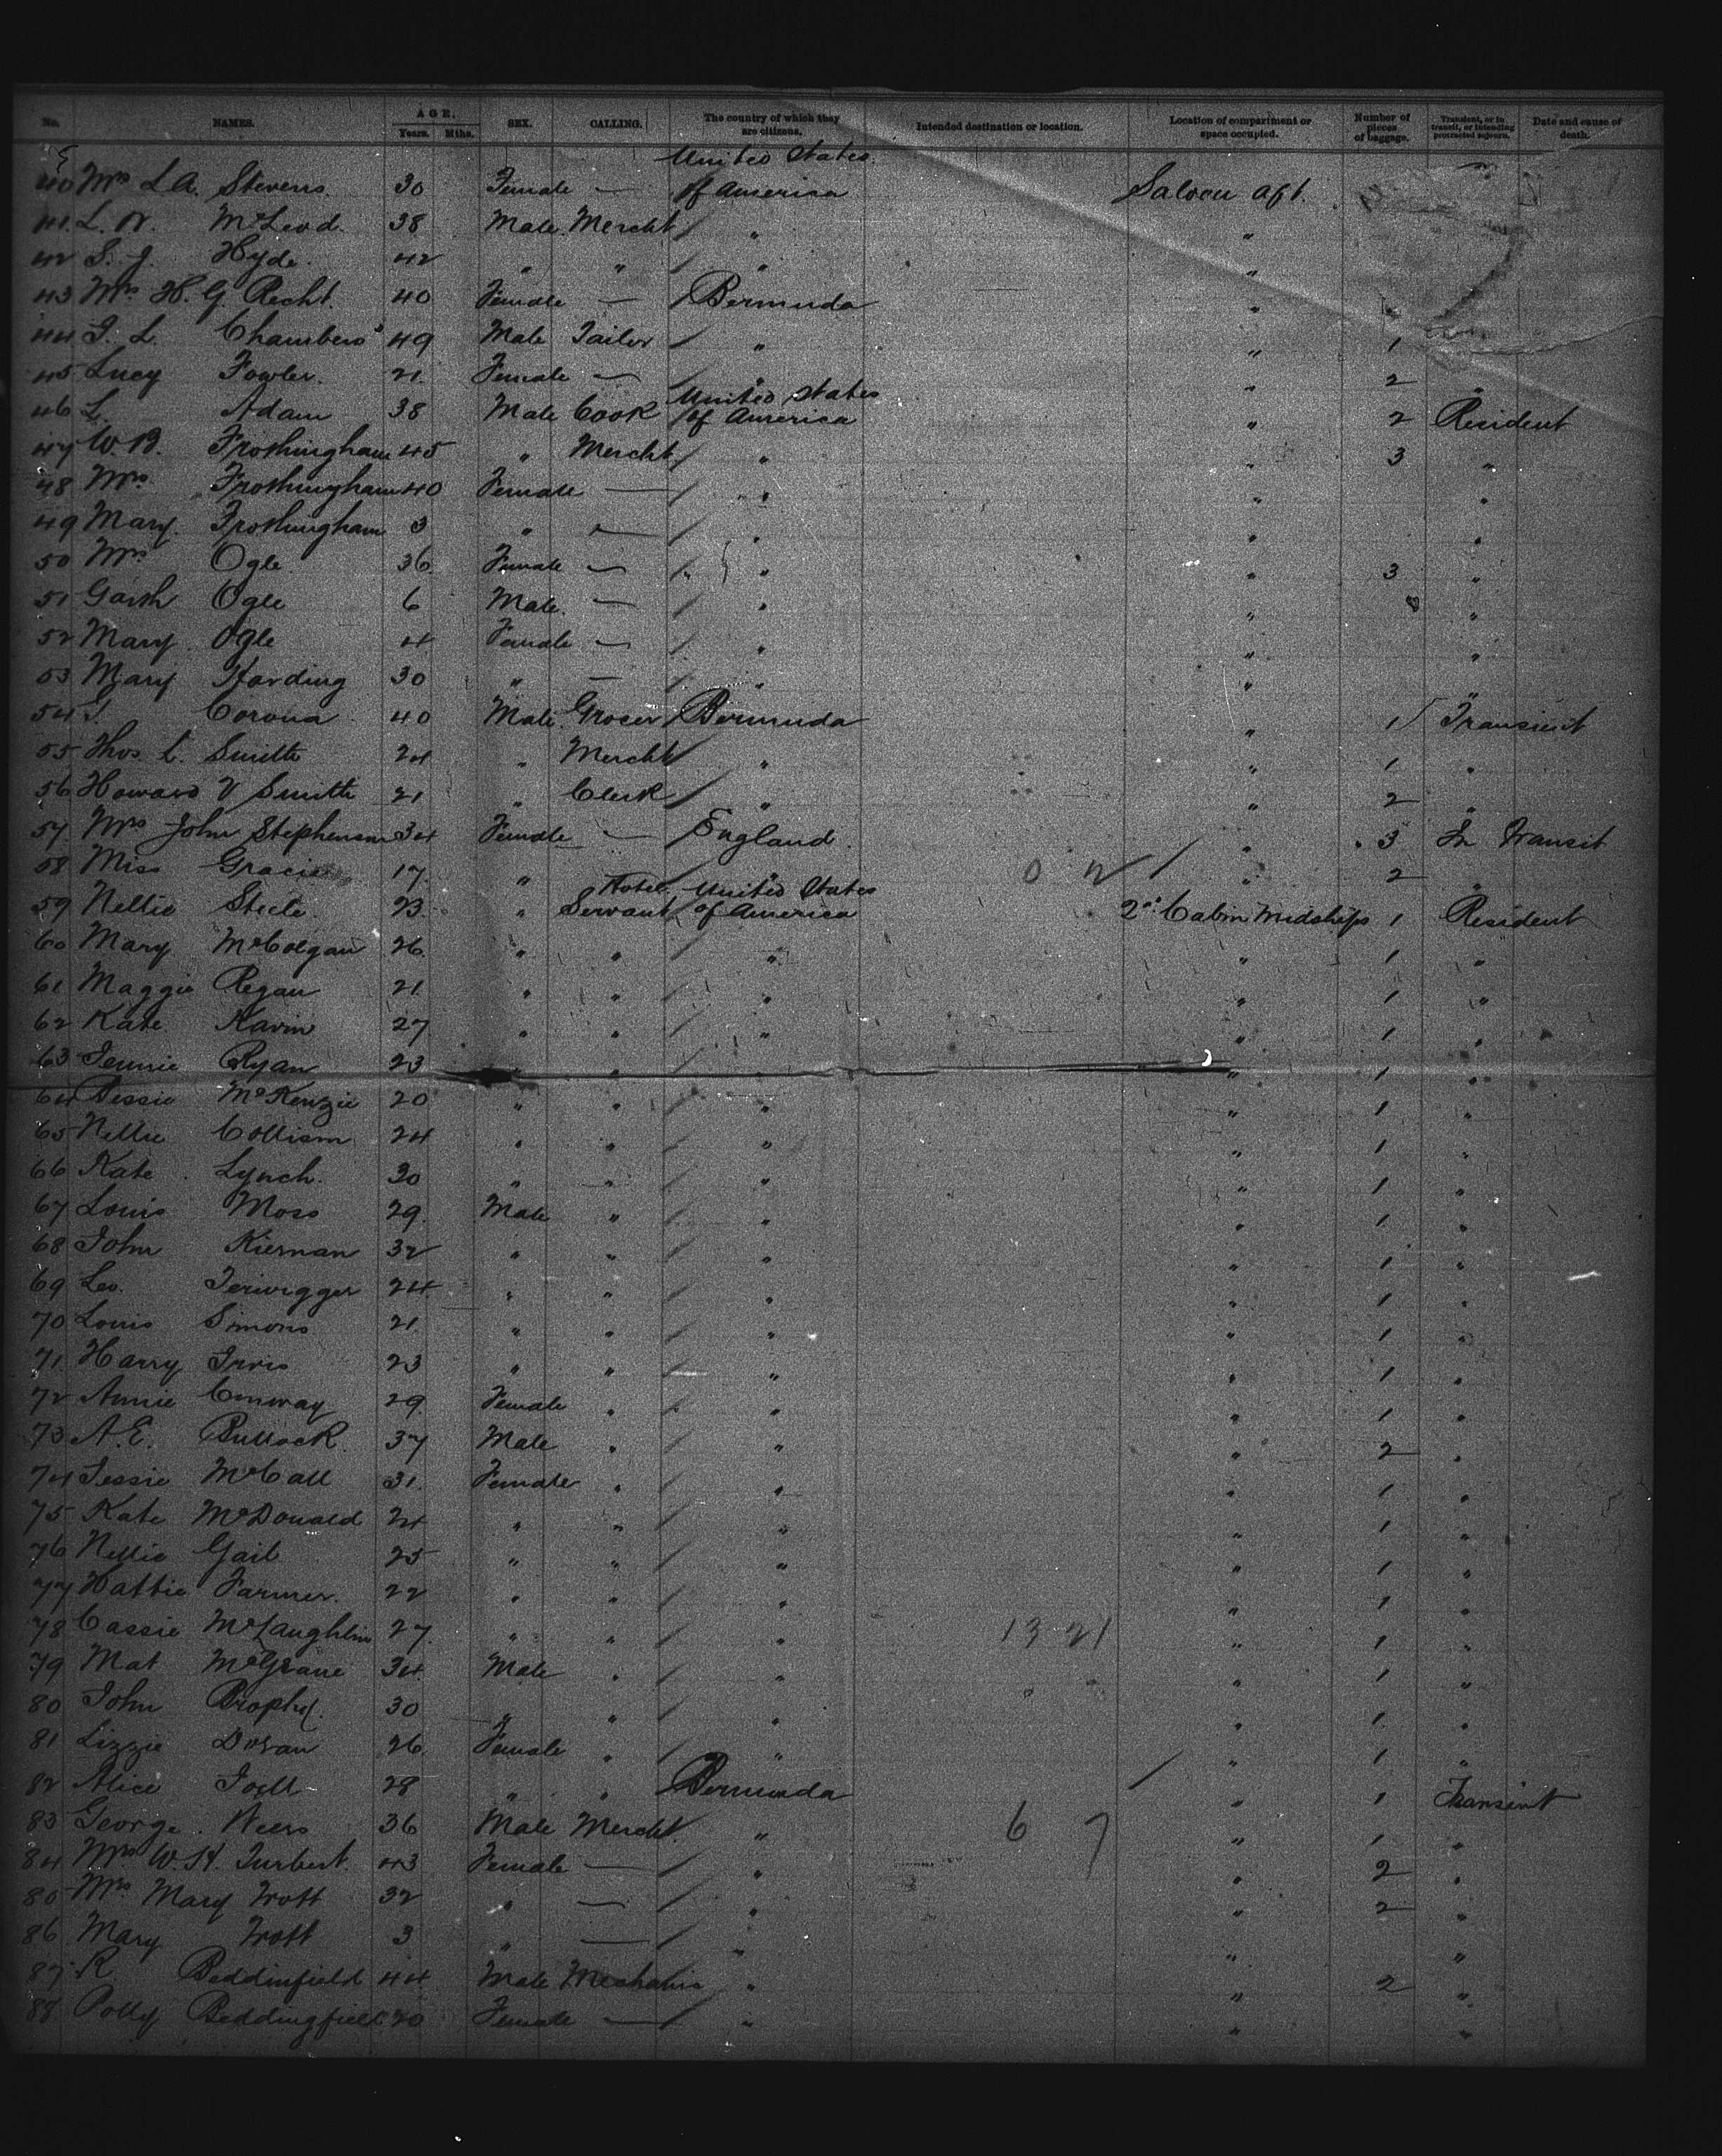 No. NAMES. AGE. Years. Mths. SEX. CALLING. The country of which they are citizens. Intended destination or location. Location of compartment or space occupied. Number of pieces of baggage. Transient, or in transit, or intending protracted sojourn. Date and cause of death.
40 Mrs L A. Stevens. 30 Female — United States of America Saloon aft.
41. L. W. McLeod. 38 Male Mercht " "
42 S. J. Hyde. 42 " " " "
43 Mrs H. G. Recht. 40 Female — Bermuda "
44 J. L. Chambers 49 Male Tailor " " 1
45 Lucy Fowler. 21. Female — " " 2 "
46 L. Adam 38 Male Cook United States of America " 2 Resident
47 W. B. Frothingham 45 " Mercht " " 3 "
48 Mrs " Frothingham 40 Female — " " "
49 Mary. Frothingham 3 " — " " "
50 Mrs Ogle 36. Female — " " 3 "
51 Garth Ogle 6 Male. — " " "
52 Mary. Ogle 4 Female — " " "
53 Mary Harding 30 " — " " "
54 J. Corona 40 Male. Grocer Bermuda " 1 Transient
55 Thos. C. Smith 24 " Mercht " " 1 "
56 Howard V Smith 21 " Clerk " " 2 "
57. Mrs John Stephenson 34 Female — England. " 3 In Transit
58 Miss Gracie 17. " " 0 2 " 2 "
59 Nellie Steele. 23. " Hotel Servant United States of America 2nd Cabin Midships 1 Resident
60 Mary McColgan 26. " " " " 1 "
61 Maggie Regan 21. " " " " 1 "
62 Kate Kavin 27 " " " " 1 "
63 Jennie Ryan 23 " " " " 1 "
64 Bessie McKenzie 20 " " " " 1 "
65 Nellie Collison 24 " " " " 1 "
66 Kate. Lynch. 30 " " " " 1 "
67 Louis Moss 29. Male " " " 1 "
68 John Kiernan 32 " " " " 1 "
69 Leo. Terwigger 24 " " " " 1 "
70 Louis Simons 21. " " " " 1 "
71 Harry Irvis 23 " " " " 1 "
72 Annie Conway 29. Female " " " 1 "
73 A. E. Bullock. 37 Male " " " 2 "
74 Jessie McCall 31. Female " " " 1 "
75 Kate McDonald 24 " " " " 1 "
76 Nellie Gail 25 " " " " 1 "
77 Hattie Farmer. 22 " " " " 1 "
78 Cassie McLaughlin 27. " " " 13 21 " 1 "
79 Mat McGrane 34. Male " " " 1 "
80 John Brophy. 30 " " " " 1. "
81 Lizzie Doran 26. Female " " " 1 "
82 Alice Joell 28 " " Bermuda " 1 Transient
83 George. Weers 36 Male Mercht. " 6 7 " 1. "
84 Mrs W. H. Turbert. 43 Female — " " 2 "
85 Mrs Mary Trott 32 " — " " 2 "
86 Mary Trott 3 " — " " "
87 R Beddinfield 44 Male Mechanic " " 2 "
88. Polly Beddingfield 20 Female — " " "